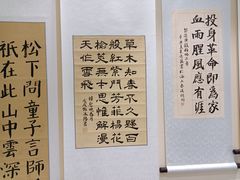 投身革命即為家
血雨腥風應有涯
草木知春不久歸百
般紅紫鬥芳菲楊花
榆莢無才思惟解漫
天作雪飛
松下問童子言師
祇在此山中雲深